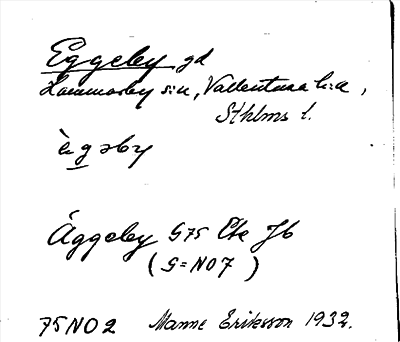 Eggeby gd
Lommarby sn, Vallentuna hd,
Sthlms l.
ègəby
Äggeby G75 Eke Jb
(G=NO7)
75NO2 Manne Eriksson 1932.